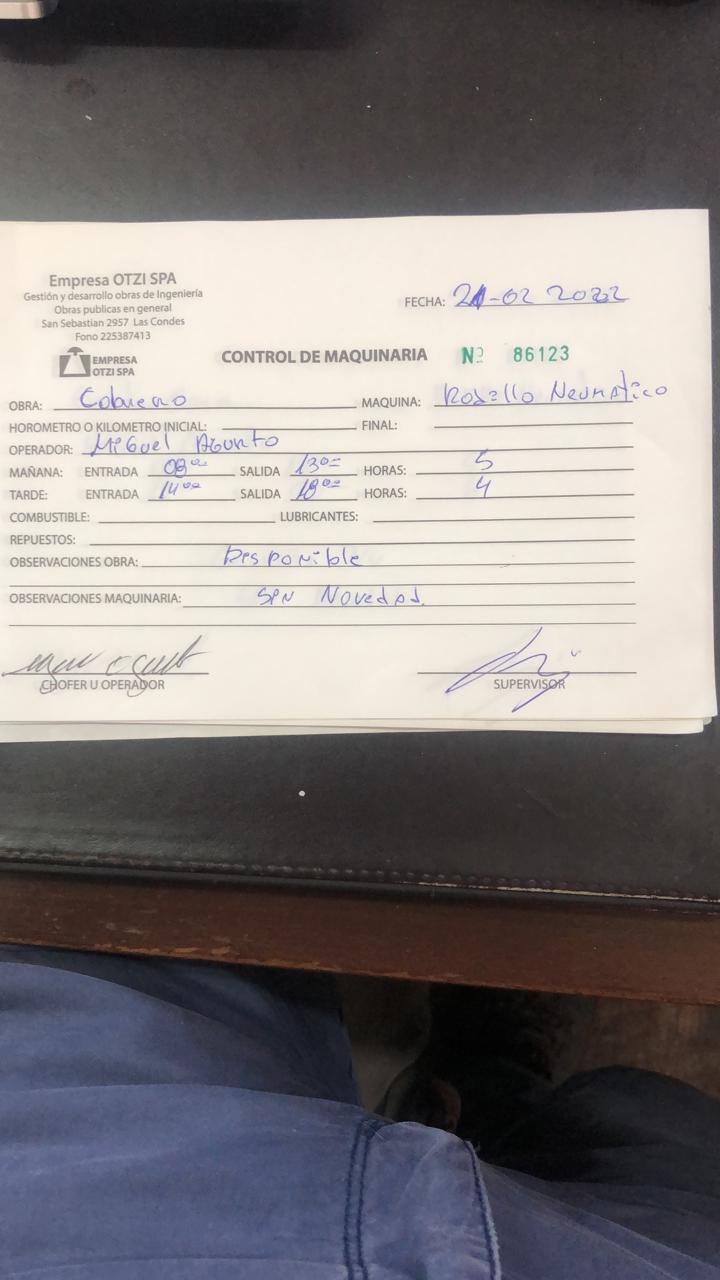 Empresa OTZI SPA
Gestión y desarrollo obras de Ingeniería
Obras publicas en general
San Sebastian 2957 Las Condes
Fono 225387413
EMPRESA
OTZI SPA
FECHA: 21-02 2022
CONTROL DE MAQUINARIA Nº 86123
OBRA: Cobreno MAQUINA: Rodillo Neumatico
HOROMETRO O KILOMETRO INICIAL: FINAL:
OPERADOR: Miguel Agurto
MAÑANA: ENTRADA 08⁰⁰ SALIDA 13⁰⁰ HORAS: 5
TARDE: ENTRADA 14⁰⁰ SALIDA 18⁰⁰ HORAS: 4
COMBUSTIBLE: LUBRICANTES:
REPUESTOS:
OBSERVACIONES OBRA: Disponible
OBSERVACIONES MAQUINARIA: Sin Novedad.
CHOFER U OPERADOR SUPERVISOR